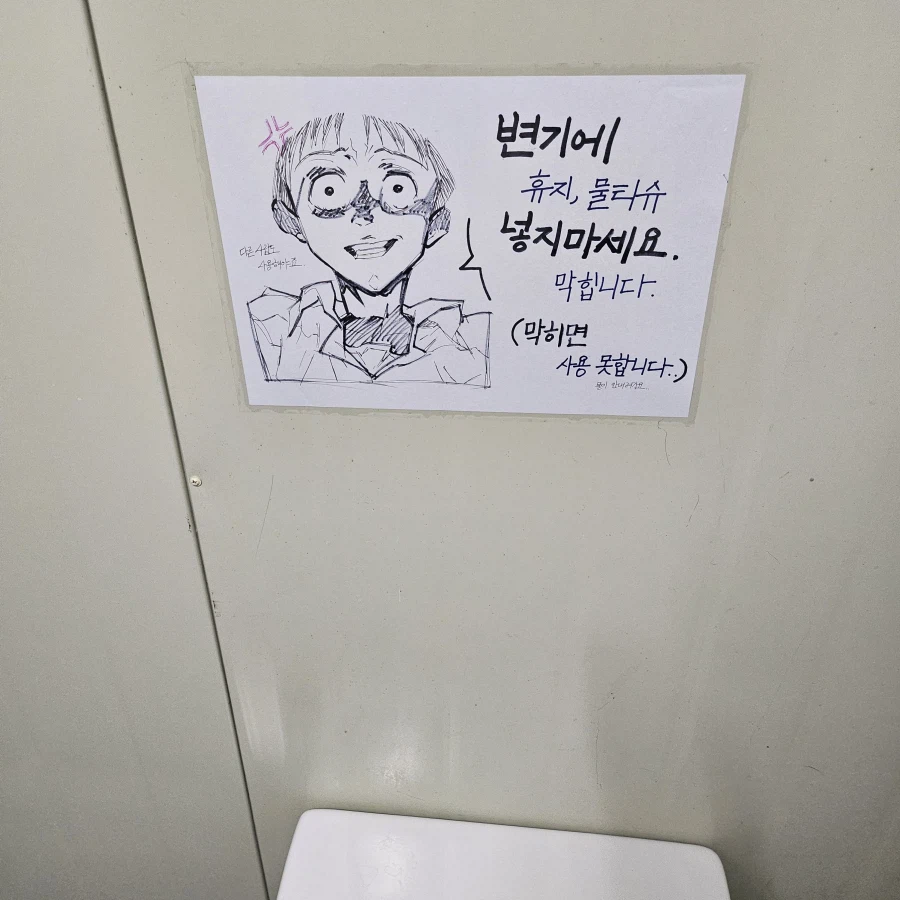 변기에
휴지, 물티슈
넣지마세요.
막힙니다.
(막히면
사용 못합니다..)
다른 사람도
사용해야죠